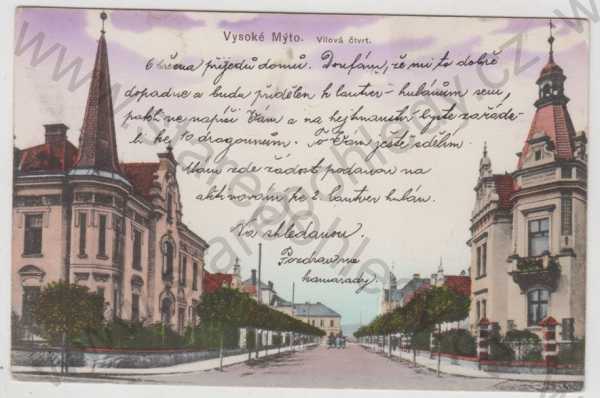 Vysoké Mýto. Vilová čtvrt.
6 března přijedu domů. Doufám, že mi to dobře
dopadne a budu přidělen k lantver-hulánům sem,
pakli ne napíši Vám a na hejtmanství byste zařáde-
li ke 10 dragounům. to Vám ještě sdělím.
Mám zde žádost podanou na
aktivování ke 2. lantver hulán.
Na shledanou.
Pozdrav na
kamarády.